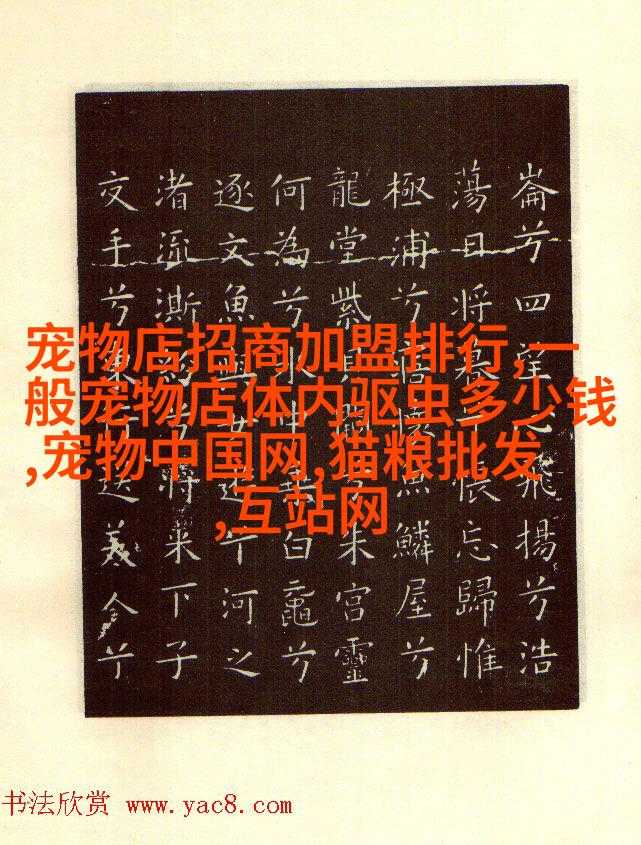 宠物店招商加盟排行,一
般宠物店体内驱虫多少钱
,宠物中国网,猫粮批发
,互站网
崙兮四望飛揚兮浩
蕩日將暮悵忘歸惟
極浦兮寤懷魚鱗屋兮
龍堂紫貝闕朱宮靈
何為兮水中白黿兮
逐文魚與女遊兮河之
渚流澌將来下子
交手兮送美人兮
书法欣赏 www.yac8.com